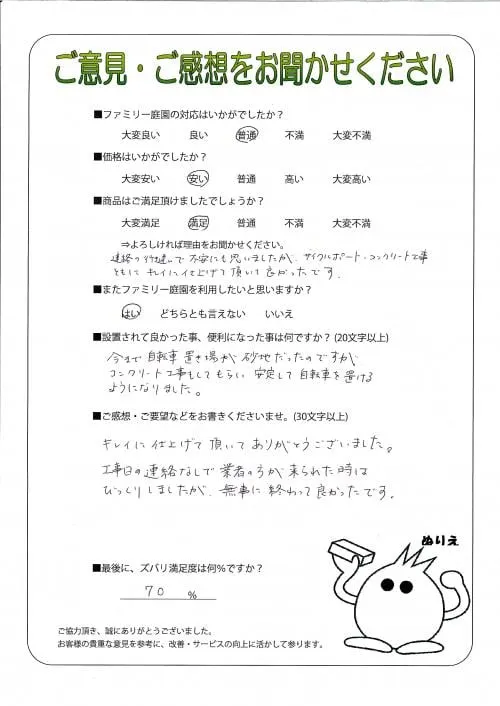 ご意見・ご感想をお聞かせください
■ファミリー庭園の対応はいかがでしたか？
大変良い 良い 普通 不満 大変不満
■価格はいかがでしたか？
大変安い 安い 普通 高い 大変高い
■商品はご満足頂けましたでしょうか？
大変満足 満足 普通 不満 大変不満
⇒よろしければ理由をお聞かせください。
連絡の行違いで不安にも思いましたが、サイクルポート・コンクリート工事
ともにキレイに仕上げて頂いて良かったです。
■またファミリー庭園を利用したいと思いますか？
はい どちらとも言えない いいえ
■設置されて良かった事、便利になった事は何ですか？(20文字以上)
今まで自転車置き場が砂地だったのですが
コンクリート工事をしてもらい安定して自転車を置ける
ようになりました。
■ご感想・ご要望などをお書きくださいませ。(30文字以上)
キレイに仕上げて頂いてありがとうございました。
工事日の連絡なしで業者の方が来られた時は
びっくりしましたが、無事に終わって良かったです。
ぬりえ
■最後に、ズバリ満足度は何％ですか？
70 %
ご協力頂き、誠にありがとうございました。
お客様の貴重な意見を参考に、改善・サービスの向上に活かして参ります。